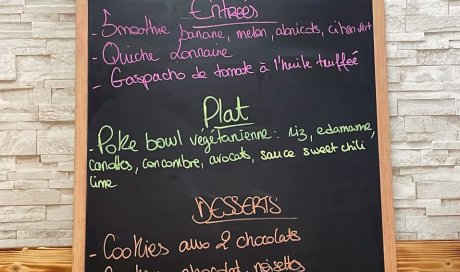 Entrées
- Smoothie banane, melon, abricots, citron vert
- Quiche Lorraine
- Gaspacho de tomate à l'huile truffée
Plat
- Poke bowl végétarienne : riz, edamame,
carottes, concombre, avocats, sauce sweet chili
lime
DESSERTS
- Cookies aux 2 chocolats
- Cookies chocolat, noisettes